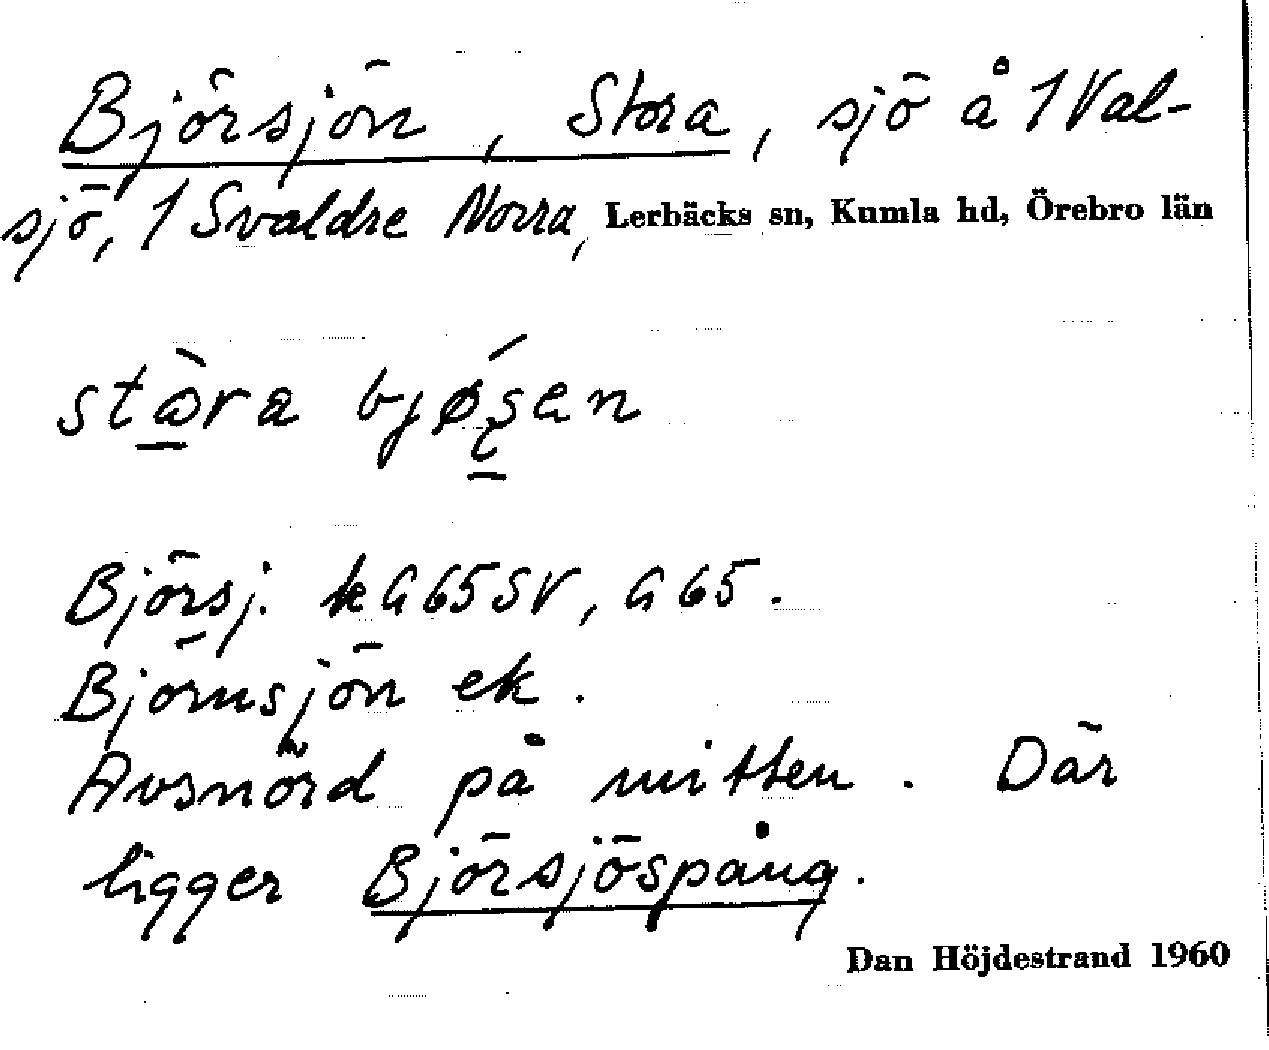 Björsjön, Stora, sjö å 1 Val-
sjö, 1 Svaldre Norra, Lerbäcks sn, Kumla hd, Örebro län
stɷ̀ra bjǿʂɛn
Björsj. kG65SV, G65.
Björnsjön ek.
Avsnörd på mitten. Där
ligger Björsjöspång.
Dan Höjdestrand 1960